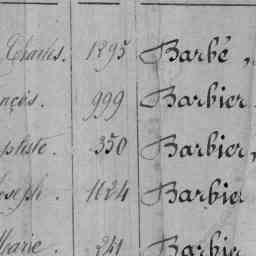 Charles. 1895 Barbé,
nçois. 999 Barbier
ptiste. 350 Barbier,
oseph. 1624 Barbier
Marie. 241 Barbier